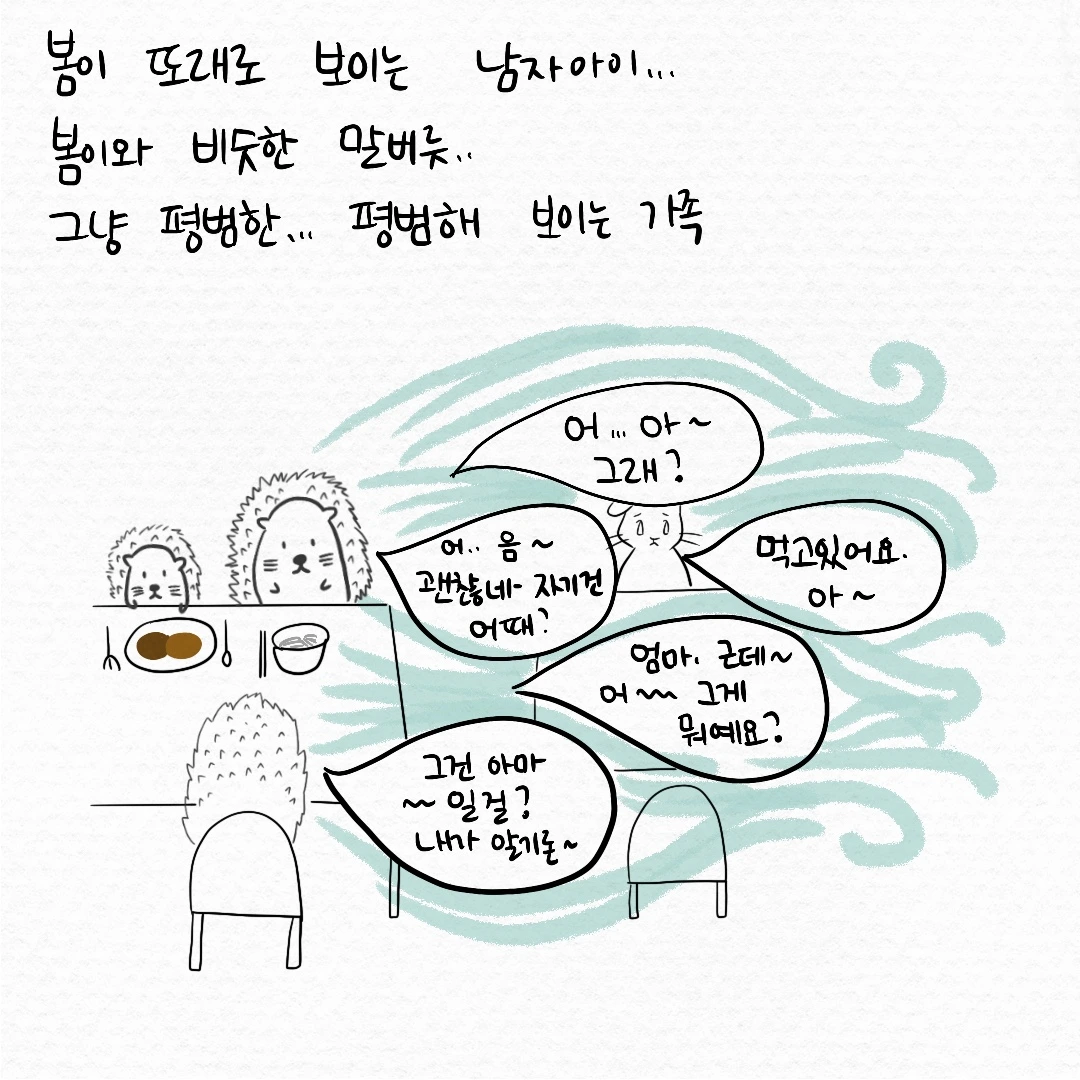 봄이 또래로 보이는 남자아이...
봄이와 비슷한 말버릇..
그냥 평범한... 평범해 보이는 가족
어... 아~
그래?
어.. 음~
괜찮네~ 자기건
어때?
먹고있어요.
아~
엄마. 근데~
어~~ 그게
뭐예요?
그건 아마
~~ 일걸?
내가 알기론~